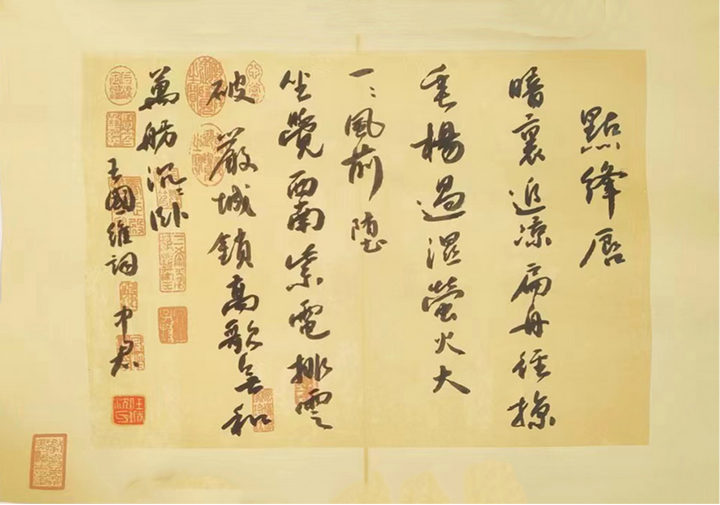 點絳唇
暗裏追凉扁舟徑掠
垂楊過濕螢火大
一々風前堕
坐覺西南紫電排雲
破 嚴城鎖高歌無和
萬舫沉々卧
王國維詞 中